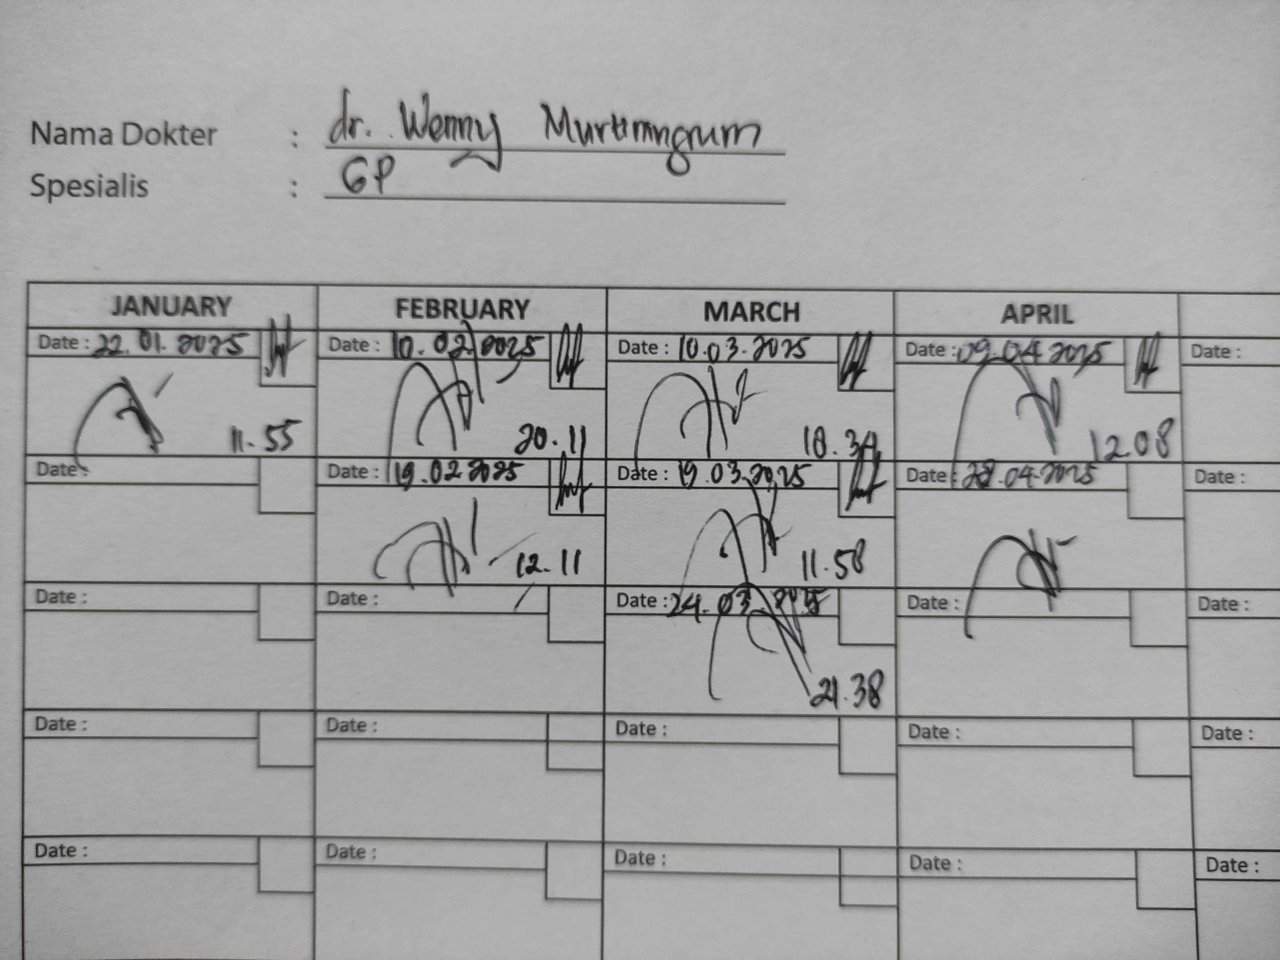 Nama Dokter : dr. Wenny Murtiningrum
Spesialis : GP
JANUARY FEBRUARY MARCH APRIL
Date : 22.01.2025 Date : 10.02.2025 Date : 10.03.2025 Date : 09.04.2025 Date :
11.55 20.11 18.34 12.08
Date : Date : 19.02.2025 Date : 19.03.2025 Date : 28.04.2025 Date :
12.11 11.58
Date : Date : Date : 24.03.2025 Date : Date :
21.38
Date : Date : Date : Date : Date :
Date : Date : Date : Date : Date :